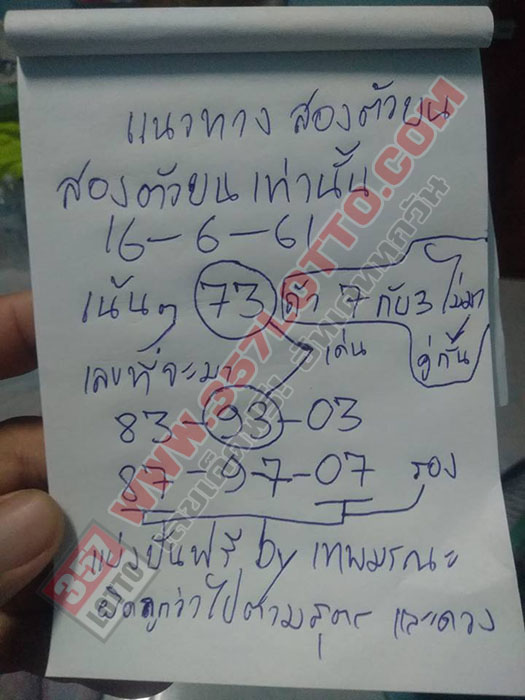 แนวทาง สองตัวบน
สองตัวบน เท่านั้น
16-6-61
เน้นๆ 73 ถ้า 7 กับ 3 ไม่มา
คู่กัน
เด่น
เลขที่จะมา
83-93-03
87-97-07 รอง
แบ่งปันฟรี by เทพมรณะ
ผิดถูกว่าไปตามสูตร และดวง
WWW.357LOTTO.COM
357
LOTTO